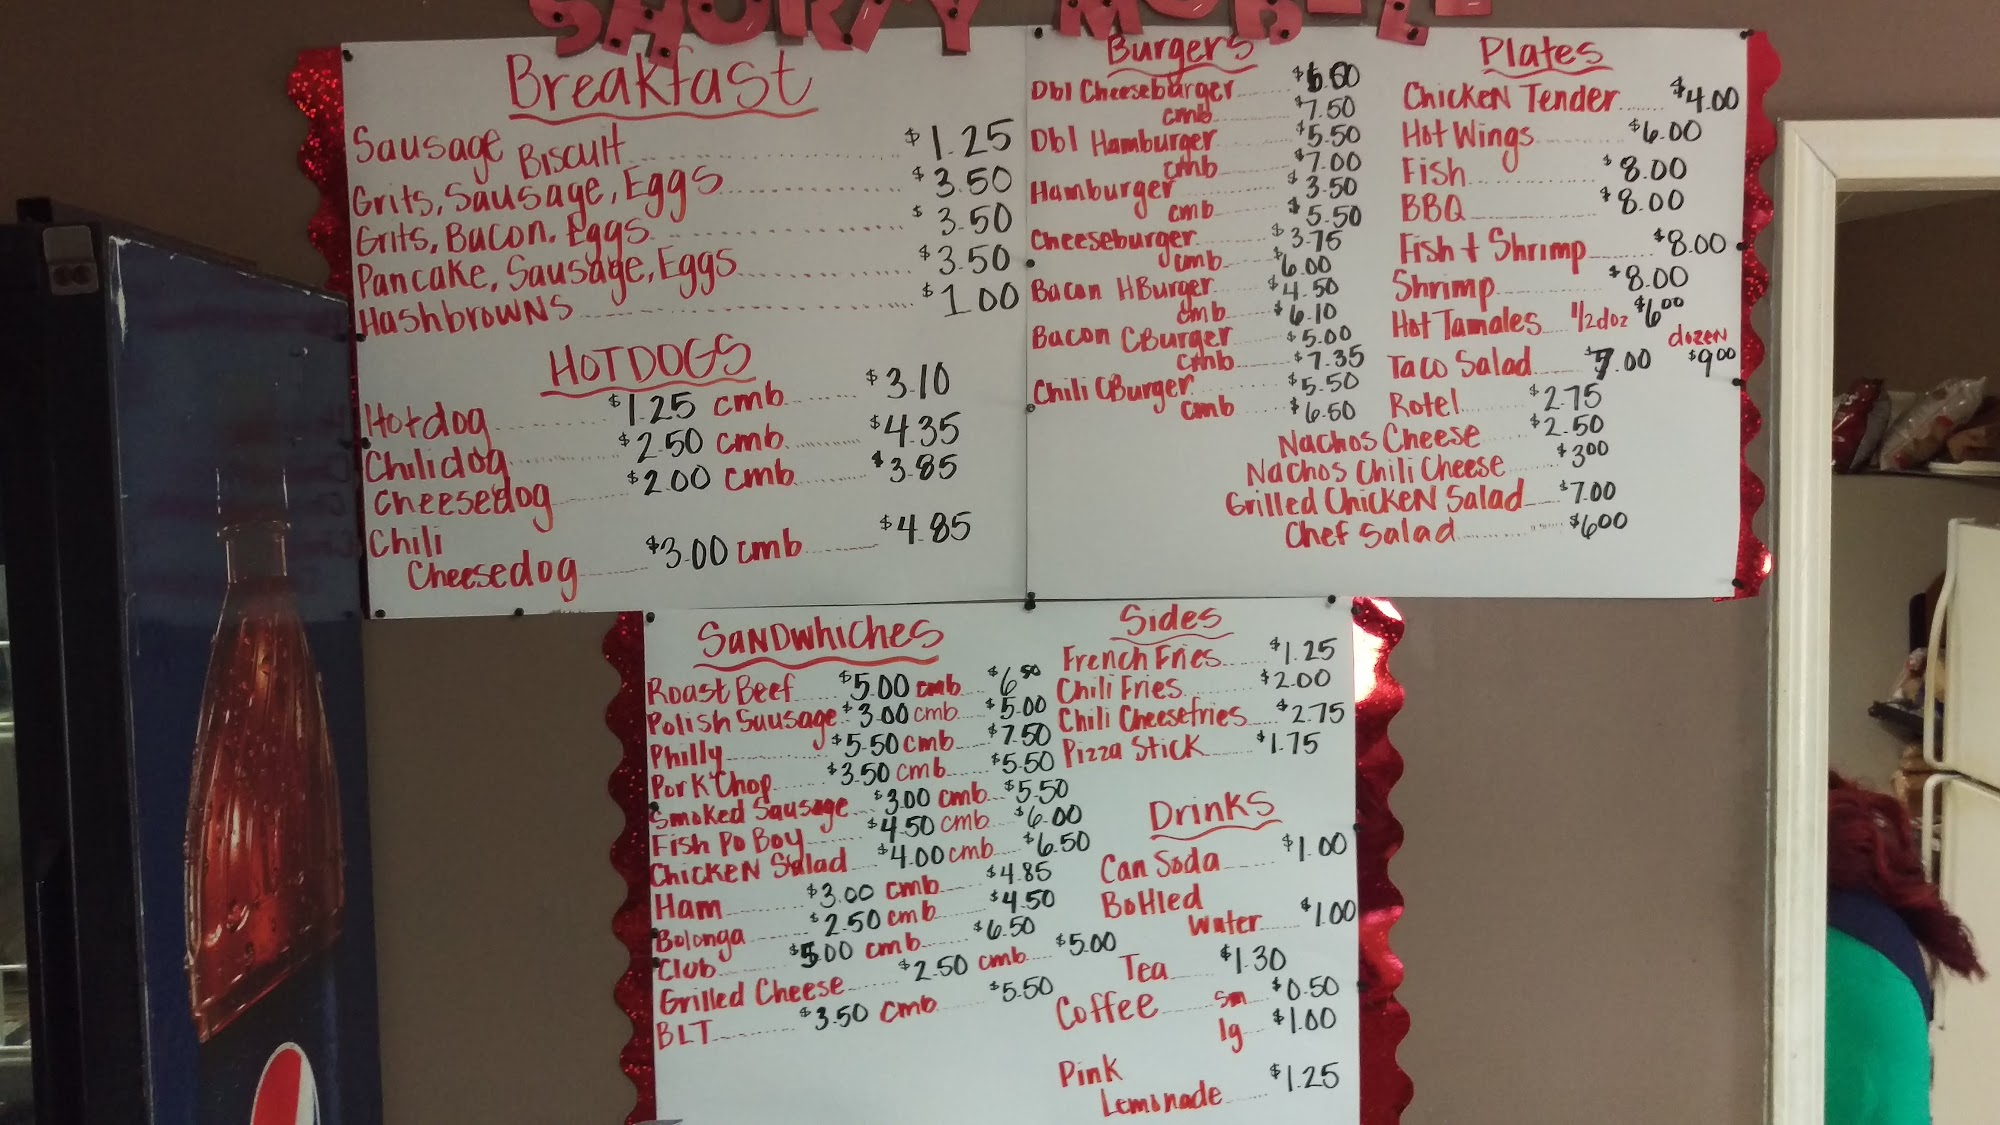 SHORTY MOBILE
Breakfast
Sausage Biscuit $1.25
Grits, Sausage, Eggs $3.50
Grits, Bacon, Eggs $3.50
Pancake, Sausage, Eggs $3.50
Hashbrowns $1.00
HOTDOGS
Hotdog $1.25 cmb $3.10
Chilidog $2.50 cmb $4.35
Cheesedog $2.00 cmb $3.85
Chili
Cheesedog $3.00 cmb $4.85
Burgers
Dbl Cheeseburger $6.00
cmb $7.50
Dbl Hamburger $5.50
cmb $7.00
Hamburger $3.50
cmb $5.50
Cheeseburger $3.75
cmb $6.00
Bacon HBurger $4.50
cmb $6.10
Bacon CBurger $5.00
cmb $7.35
Chili CBurger $5.50
cmb $6.50
Plates
Chicken Tender $4.00
Hot Wings $6.00
Fish $8.00
BBQ $8.00
Fish + Shrimp $8.00
Shrimp $8.00
Hot Tamales 1/2 doz $6.00 dozen $9.00
Taco Salad $7.00
Rotel $2.75
Nachos Cheese $2.50
Nachos Chili Cheese $3.00
Grilled Chicken Salad $7.00
Chef Salad $6.00
Sandwhiches
Roast Beef $5.00 cmb $6.50
Polish Sausage $3.00 cmb $5.00
Philly $5.50 cmb $7.50
Pork Chop $3.50 cmb $5.50
Smoked Sausage $3.00 cmb $5.50
Fish Po Boy $4.50 cmb $6.00
Chicken Salad $4.00 cmb $6.50
Ham $3.00 cmb $4.85
Bolonga $2.50 cmb $4.50
Club $5.00 cmb $6.50
Grilled Cheese $2.50 cmb $5.00
BLT $3.50 cmb $5.50
Sides
French Fries $1.25
Chili Fries $2.00
Chili Cheesefries $2.75
Pizza Stick $1.75
Drinks
Can Soda $1.00
Bottled
Water $1.00
Tea $1.30
Coffee sm $0.50
lg $1.00
Pink
Lemonade $1.25